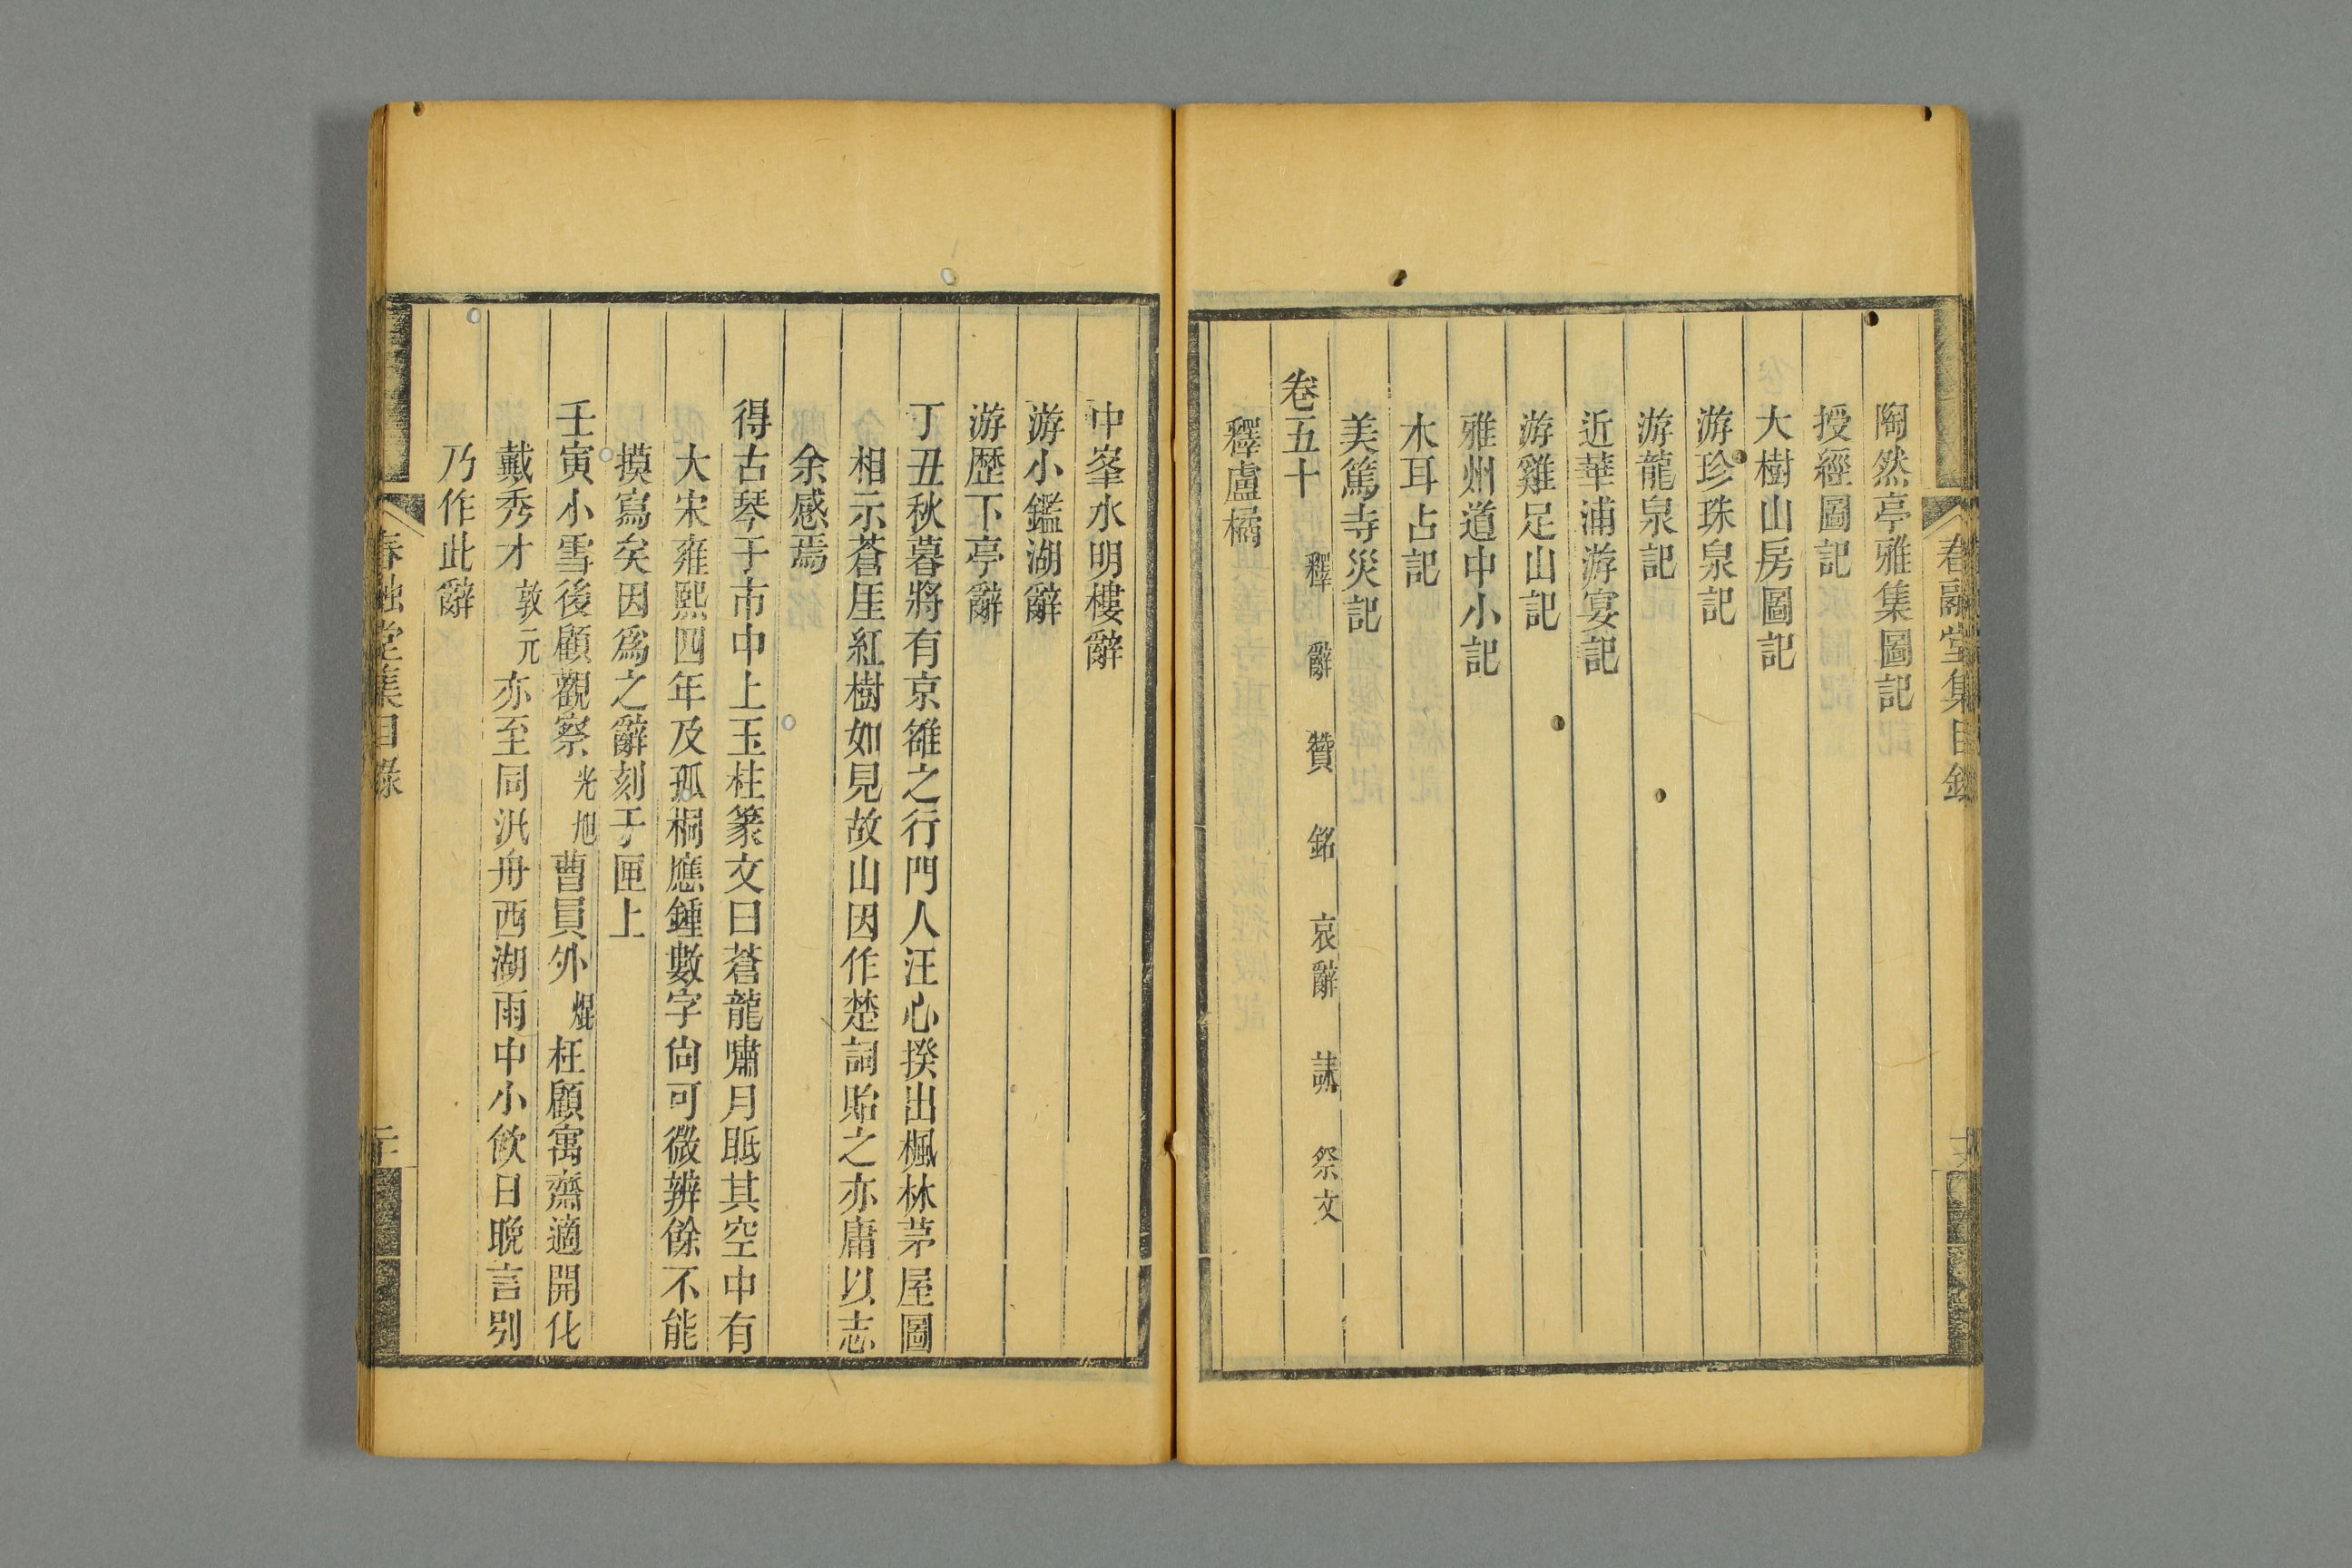 春融堂集目錄
陶然亭雅集圖記
授經圖記
大樹山房圖記
游珍珠泉記
游龍泉記
近華浦游宴記
游雞足山記
雅州道中小記
木耳占記
美篤寺災記
卷五十 釋 辭 贊 銘 哀辭 誄 祭文
釋盧橘
中峯水明樓辭
游小鑑湖辭
游歷下亭辭
丁丑秋暮將有京雒之行門人汪心揆出楓林茅屋圖
相示蒼厓紅樹如見故山因作楚詞貽之亦庸以志
余感焉
得古琴于市中上玉柱篆文曰蒼龍嘯月眂其空中有
大宋雍熙四年及孤桐應鍾數字尙可微辨餘不能
摸寫矣因爲之辭刻于匣上
壬寅小雪後顧觀察光旭曹員外焜枉顧寓齋適開化
戴秀才敦元亦至同汎舟西湖雨中小飲日晚言別
乃作此辭
春融堂集目錄